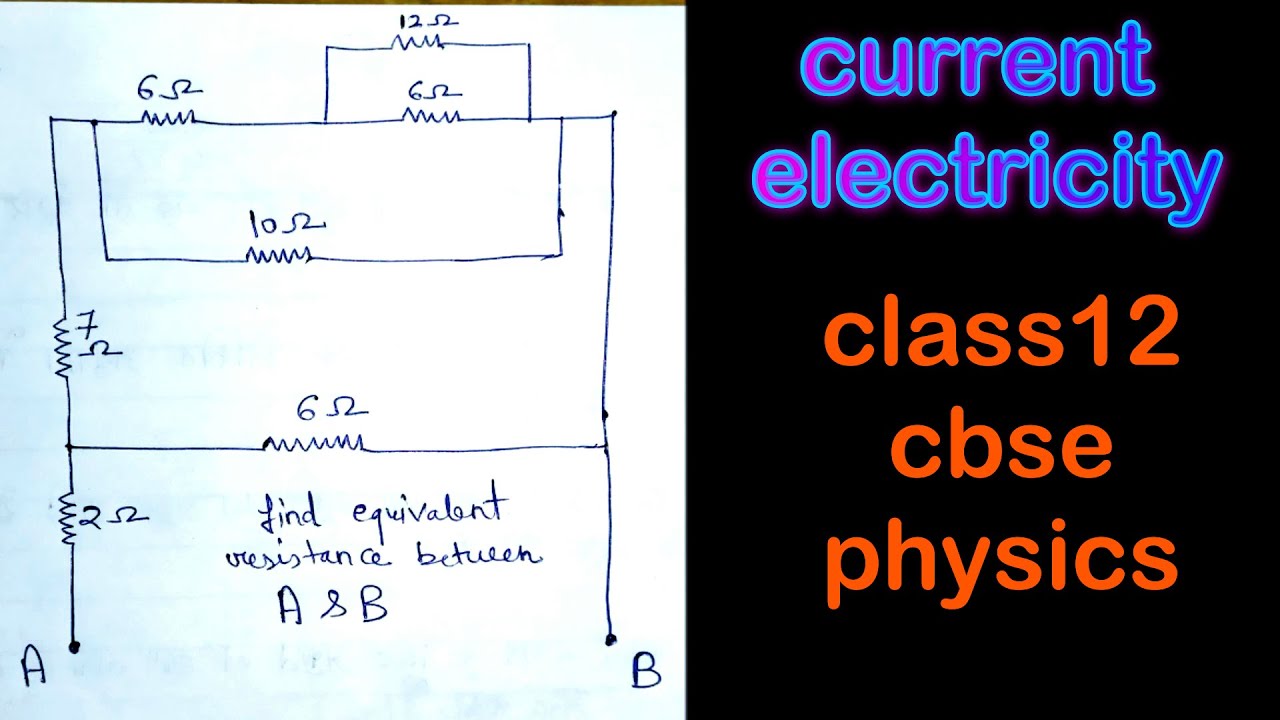 12Ω
6Ω
6Ω
10Ω
7
Ω
6Ω
2Ω
find equivalent
resistance between
A & B
A
B
current
electricity
class12
cbse
physics